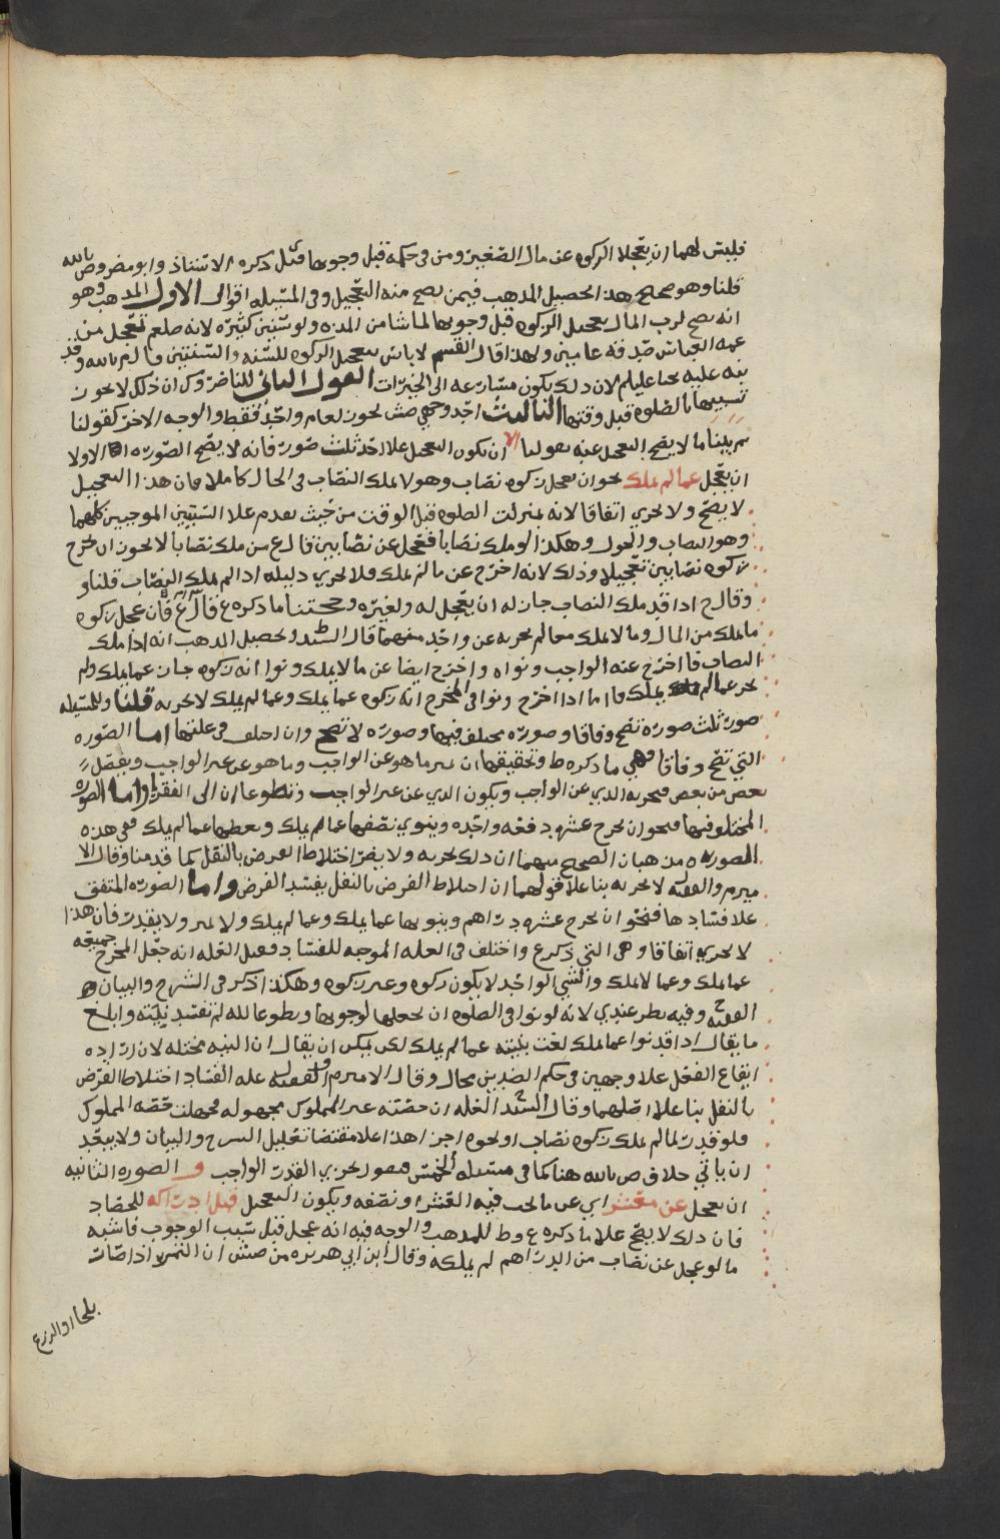 فليس لهما ان يعجلا الزكوه عن مال الصغير ومن فى حكمه قبل وجوبها قيل ذكره الاستاذ وابو مضر وص بالله
قلنا وهو صحيح هذا تحصيل المذهب فيمن يصح منه التعجيل وفى المسئله اقوال الاول المذهب وهو
انه يصح لرب المال تعجيل الزكوه قبل وجوبها لما شا من المده ولو سنين كثيره لانه صلعم تعجل من
عمه العباس صدقه عامين ولهذا قال القسم لا باس بتعجيل الزكوه للسنه والسنتين قال م بالله وقد
نبه عليه يحيا عليلم لان ذلك يكون مسارعه الى الخيرات القول الثانى للناصر وك ان ذلك لا يجوز
تشبيها بالصلوه قبل وقتها الثالث احد وجهي صش يجوز لعام واحد فقط والوجه الاخر كقولنا
ثم بينا ما لا يصح التعجيل عنه بقولنا الا ان يكون التعجيل علا احد ثلث صور فانه لا يصح الصوره الاولا
ان يعجل عما لم يملك نحو ان يعجل زكوه نصاب وهو لا يملك النصاب فى الحال كاملا فان هذا التعجيل
لا يصح ولا يجزي اتفاقا لانه بمنزلت الصلوه قبل الوقت من حيث تقدم علا السببين الموجبين كلهما
وهو النصاب والحول وهكذا لو ملك نصابا فعجل عن نصابين قال ع من ملك نصابا لا يجوز ان يخرج
زكوه نصابين تعجيلا وذلك لانه اخرج عن ما لم يملك فلا يجزي دليله اذا لم يملك النصاب قلنا و
وقال ح اذا قد ملك النصاب جاز له ان يعجل له ولغيره وحجتنا ما ذكره ع قال ع فان عجل زكوه
ما ملك من المال وما لا يملك معا لم يجزه عن واحد منهما قال السيد وتحصيل المذهب انه اذا ملك
النصاب فاخرج عنه الواجب ونواه واخرج ايضا عن ما لا يملك ونوا انه زكوه جاز عما يملك ولم
يجز عما لم يملك فاما اذا اخرج ونوا فى المخرج انه زكوه عما يملك وعما لم يملك لا يجزيه قلنا وللمسئله
صور ثلث صوره تصح وفاقا وصوره مختلف فيها وصوره لا تصح وان اختلف فى علتها اما الصوره
التي تصح وفاقا فهي ما ذكره ط وتحقيقها ان يميز ما هو عن الواجب وما هو عن غير الواجب ويفصل
بعض من بعض فيجزيه الذي عن الواجب ويكون الذي عن غير الواجب تطوعا ان الى الفقرا واما الصوره
المختلف فيها فنحو ان يخرج عشره دفعه واحده وينوي نصفها عما لم يملك وبعضها عما لم يملك ففى هذه
الصوره مذهبان الصحيح منهما ان ذلك يجزيه ولا يضر اختلاط الفرض بالنفل كما قدمنا وقال الا
ميرم والفقيه ل لا يجزيه بنا علا قولهما ان اختلاط الفرض بالنفل يفسد الفرض واما الصوره المتفق
علا فسادها فنحو ان يخرج عشره دراهم وينويها عما يملك وعما لم يملك ولا يميز ولا يقدر فان هذا
لا يجزيه اتفاقا وهى التي ذكر ع واختلف فى العله الموجبه للفساد فقيل العله انه جعل المخرج جميعه
عما يملك وعما لا يملك والشي الواحد لا يكون زكوه وغير زكوه وهكذا ذكر فى الشرح والبيان و
الفقيه ح وفيه نظر عندي لانه لو نوا فى الصلوه ان يجعلها لوجوبها وتطوعا لله لم تفسد نيته وابلغ
ما يقال اذا قد نوا عما يملك لغت نيته عما لم يملك لكن يمكن ان يقال ان النيه مختله لان اراده
ايقاع الفعل علا وجهين فى حكم الضدين محال وقال الامير م والفقيه ل عله الفساد اختلاط الفرض
بالنفل بنا علا اصلهما وقال السيد ح العله ان حصته غير المملوك مجهوله فجهلت حصه المملوك
فلو قدر لما لم يملك زكوه نصاب او نحوه اجزا هذا علا مقتضا تعليل الشرح والبيان ولا يبعد
ان ياتي خلاف ص بالله هنا كما فى مسئله الخمس فيقول يجزي القدر الواجب و الصوره الثانيه
ان يعجل عن معشر اي عن ما يجب فيه العشر او نصفه ويكون التعجيل قبل ادراكه للحصاد
فان ذلك لا يصح علا ما ذكره ع وط للمذهب والوجه فيه انه عجل قبل سبب الوجوب فاشبه
ما لو عجل عن نصاب من الدراهم لم يملكه وقال ابن ابي هريره من صش ان الثمر اذا صارت
بلحا والزرع